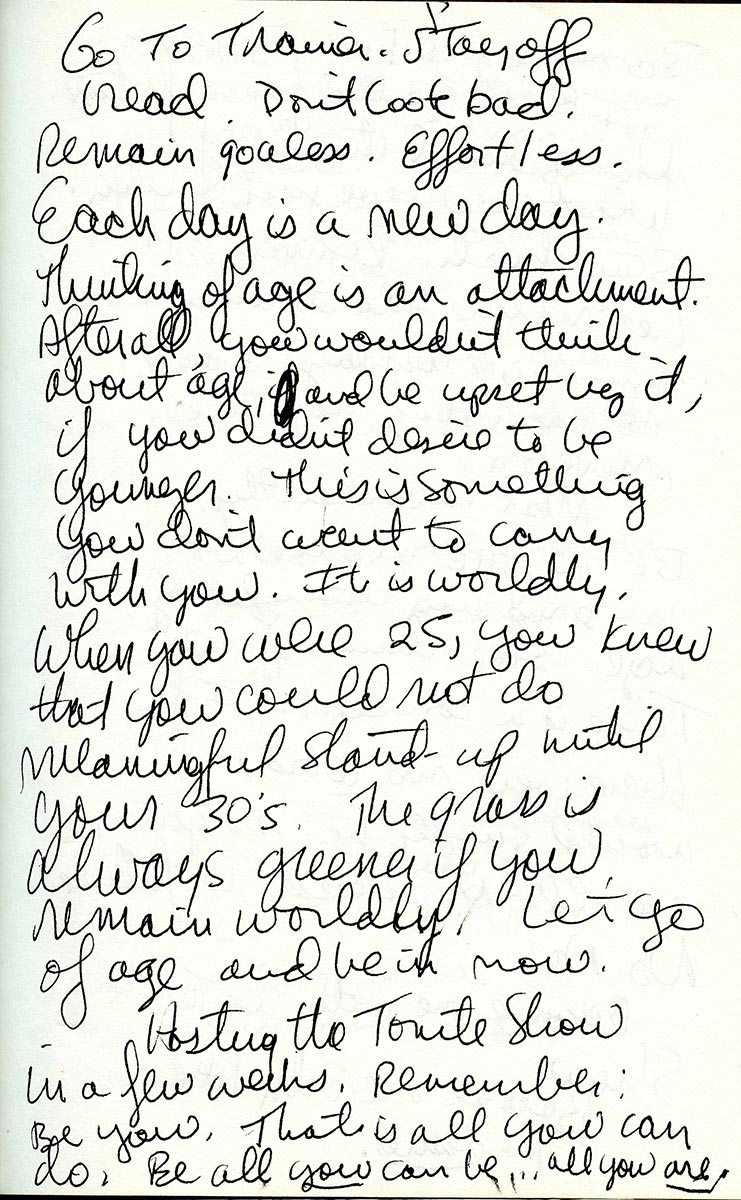 Go To Trainer. Stay off
bread. Don't look bad.
Remain goaless. Effortless.
Each day is a new day.
Thinking of age is an attachment.
After all, you wouldn't think
about age, and be upset by it,
if you didn't desire to be
younger. This is something
you don't want to carry
with you. It is worldly.
When you were 25, you knew
that you could not do
meaningful stand-up until
your 30's. The grass is
always greener if you
remain worldly. Let go
of age and be in now.
Hosting the Tonite Show
in a few weeks. Remember:
Be you. That is all you can
do. Be all you can be... all you are.